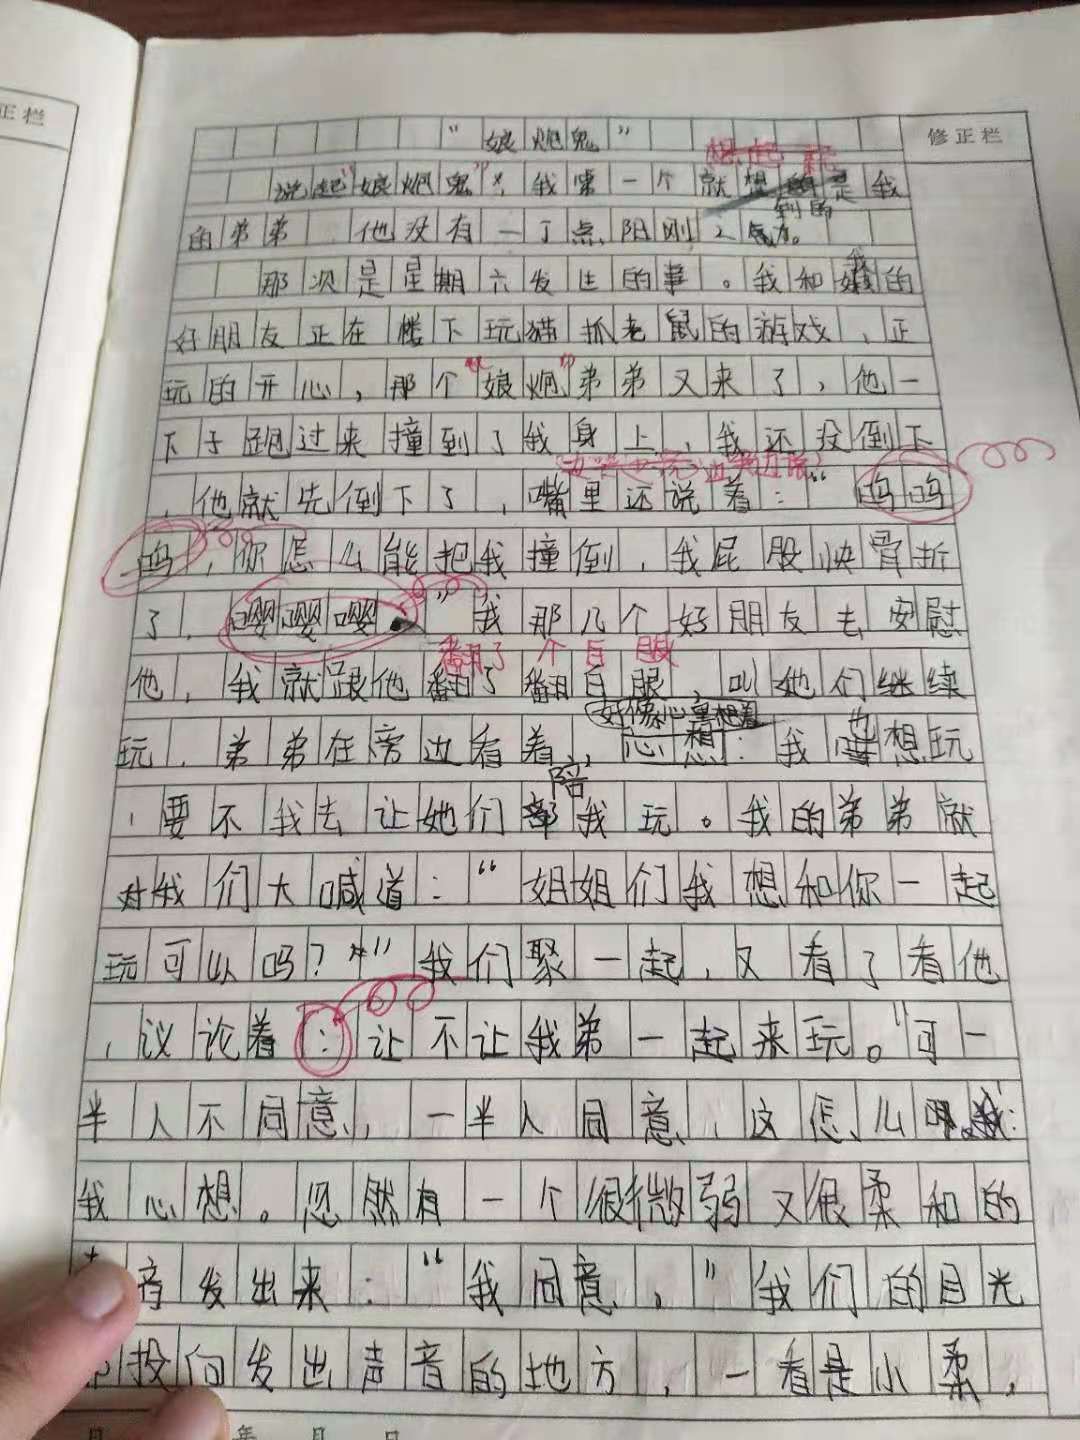 正栏
修正栏
“娘炮鬼”
想起
说起“娘炮鬼”，我第一个就想到的是我
的弟弟 他没有一丁点阳刚之气。
那次是星期六发生的事。我和我的
好朋友正在楼下玩猫抓老鼠的游戏，正
玩的开心，那个“娘炮”弟弟又来了，他一
下子跑过来撞到了我身上，我还没倒下
，他就先倒下了，嘴里还说着：“呜呜
呜，你怎么能把我撞倒，我屁股快骨折
了，嘤嘤嘤”我那几个好朋友去安慰
翻了个白眼
他，我就跟他翻了翻白眼，叫她们继续
好像心里想着
玩，弟弟在旁边看着，心想：我也想玩
，要不我去让她们陪我玩。我的弟弟就
对我们大喊道：“姐姐们我想和你一起
玩可以吗？”我们聚一起，又看了看他
，议论着：让不让我弟一起来玩。“可一
半人不同意，一半人同意，这怎么
我心想。忽然有一个很微弱又很柔和的
音发出来：“我同意，”我们的目光
投向发出声音的地方，一看是小柔，
月 年 月 日